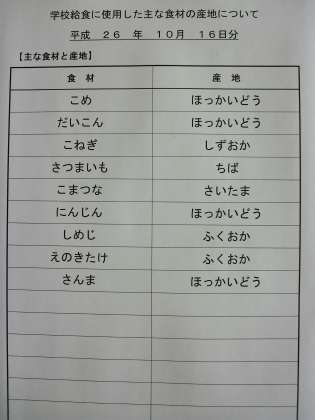 学校給食に使用した主な食材の産地について
平成　２６　年　１０月　１６日分
【主な食材と産地】
食　材　産　地
こめ　ほっかいどう
だいこん　ほっかいどう
こねぎ　しずおか
さつまいも　ちば
こまつな　さいたま
にんじん　ほっかいどう
しめじ　ふくおか
えのきたけ　ふくおか
さんま　ほっかいどう